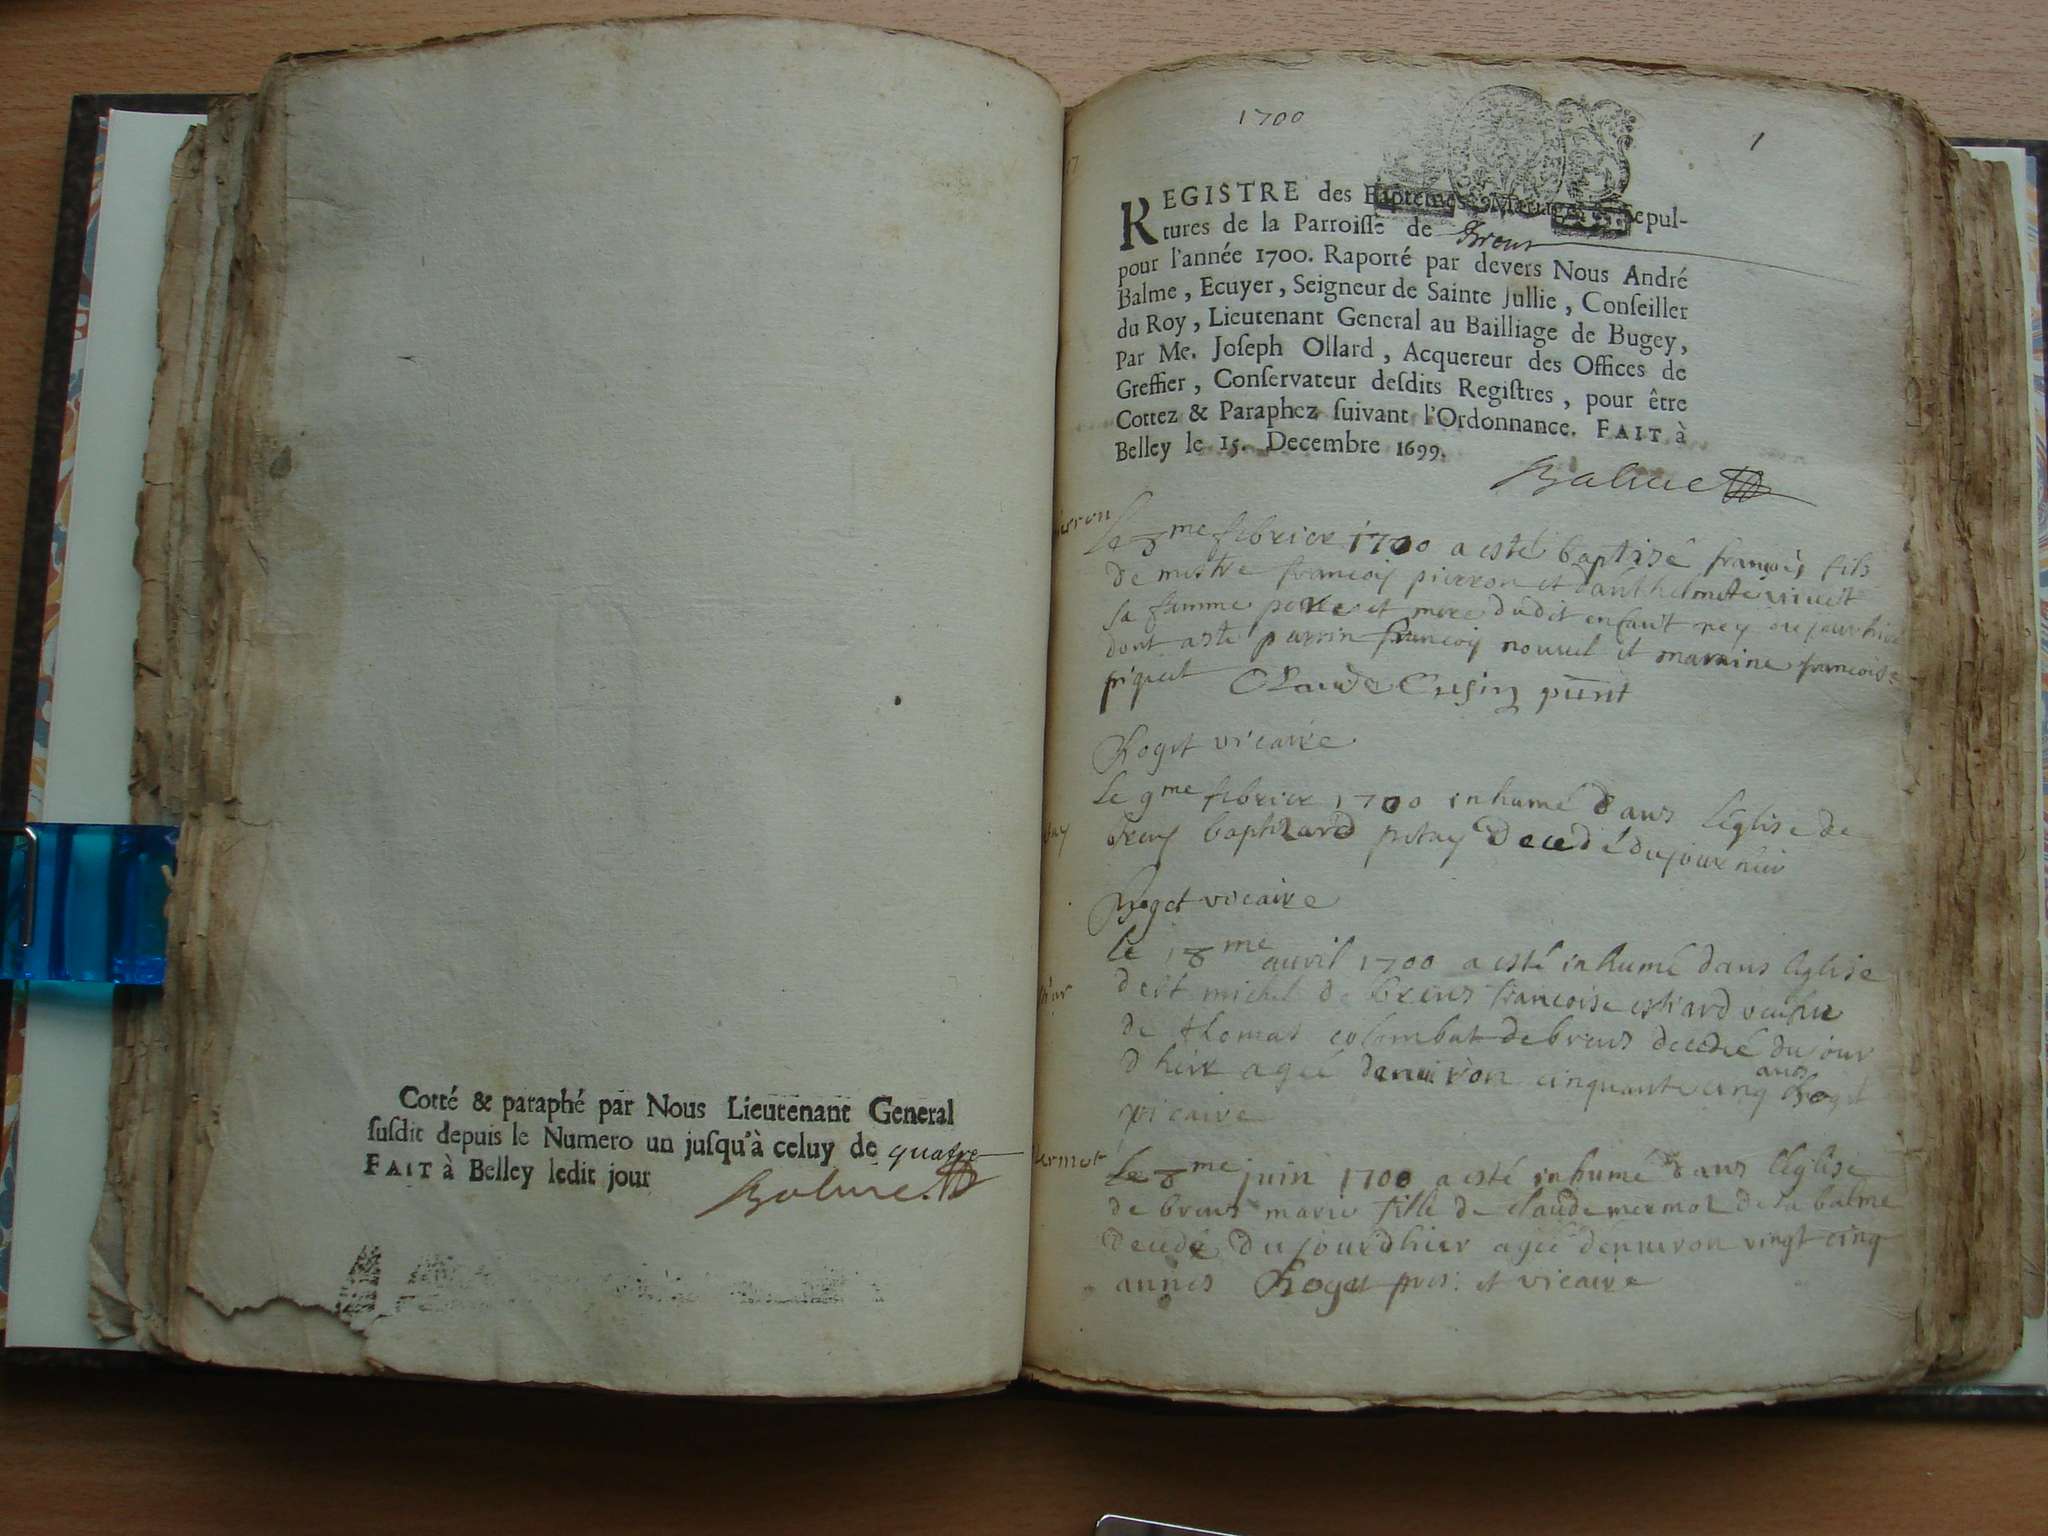 Cotté & paraphé par Nous Lieutenant General
susdit depuis le Numero un jusqu'à celuy de quatre
FAIT à Belley ledit jour
Balme
1700
1
REGISTRE des Baptemes, Mariages & Sepul-
tures de la Parroisse de Brens
pour l'année 1700. Raporté par devers Nous André
Balme, Ecuyer, Seigneur de Sainte Jullie, Conseiller
du Roy, Lieutenant General au Bailliage de Bugey,
Par Me. Joseph Ollard, Acquereur des Offices de
Greffier, Conservateur desdits Registres, pour être
Cottez & Paraphez suivant l'Ordonnance. FAIT à
Belley le 15. Decembre 1699.
Balme
Le 8me febrier 1700 a esté baptisé françois fils
de mistre francois pierron et danthelmete
sa famme pere et mere dudit enfant
dont a este parrin francois nouvel et marrine francoise
piquet Claude Cusin
Roget vicaire
Le 9me febrier 1700 inhumé dans leglise de
brens decedé du jour hier
Roget vicaire
Le 18me auvril 1700 a esté inhumé dans leglise
de st michel de brens francoise veufue
de thomas colombat de brens decedé du jour
d hier agée denuiron cinquante cinq ans Roget
vicaire
mermot
Le 8me juin 1700 a esté inhumé dans leglise
de brens marie fille de claude mermot de la balme
decedé du jourdhier agée denuiron vingt cinq
annés Roget et vicaire